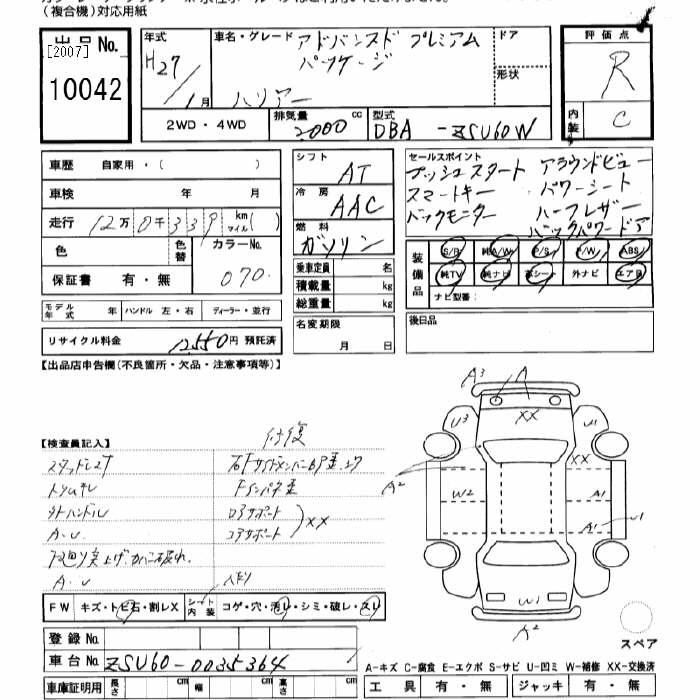 （複合機）対応用紙
出品No.
[2007]
10042
年式
H27/1月
車名・グレード
アドバンスド プレミアム
パッケージ
ハリアー
ドア
形状
評価点
R
内装
C
2WD・4WD
排気量
2000cc
型式
DBA-ZSU60W
車歴 自家用・( )
車検 年 月
走行 12万0千339km マイル( )
色
色替
カラーNo.
070
保証書 有・無
モデル年式 年 ハンドル 左・右 ディーラー・並行
リサイクル料金 12,550円 預託済
シフト
AT
冷房
AAC
燃料
ガソリン
乗車定員 名
積載量 kg
総重量 kg
名変期限
月 日
セールスポイント
プッシュスタート アラウンドビュー
スマートキー パワーシート
バックモニター ハーフレザー
バックパワードア
装備品
S/R 純A/W P/S P/W ABS
純TV 純ナビ 革シート 外ナビ エアB
ナビ型番：
後日品
【出品店申告欄(不良箇所・欠品・注意事項等)】
【検査員記入】
修復
トリムキレ
外ハンドル
A・U
A・U
ロアサポート
コアサポート
XX
A3
A
XX
U3
U1
XX
A2
W2
A1
A1
U
W1
A2
FW キズ・トビ石・割レX
シート内装 コゲ・穴・汚レ・シミ・破レ・スレ
登録No.
車台No. ZSU60-0035364
車庫証明用 長さ cm 幅 cm 高さ cm
スペア
A-キズ C-腐食 E-エクボ S-サビ U-凹ミ W-補修 XX-交換済
工具 有・無 ジャッキ 有・無